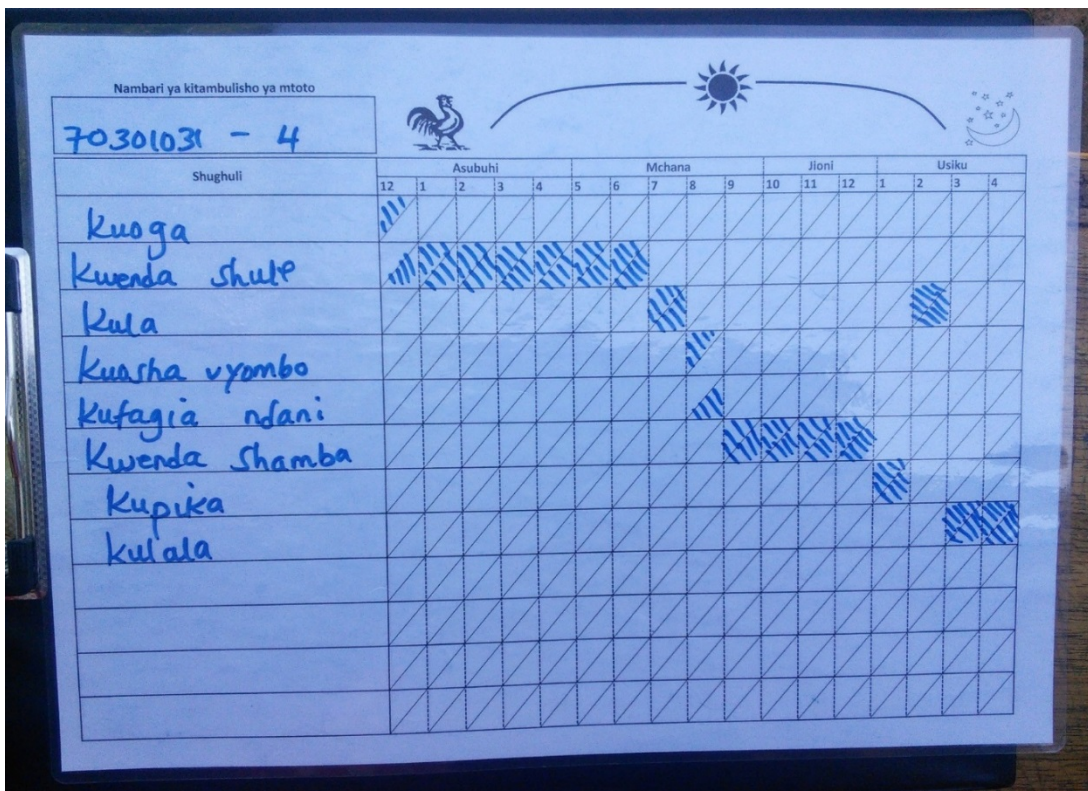 Nambari ya kitambulisho ya mtoto
70301031 - 4
Shughuli
Asubuhi Mchana Jioni Usiku
12 1 2 3 4 5 6 7 8 9 10 11 12 1 2 3 4
Kuoga
Kwenda shule
Kula
Kuosha vyombo
Kufagia ndani
Kwenda Shamba
Kupika
kulala